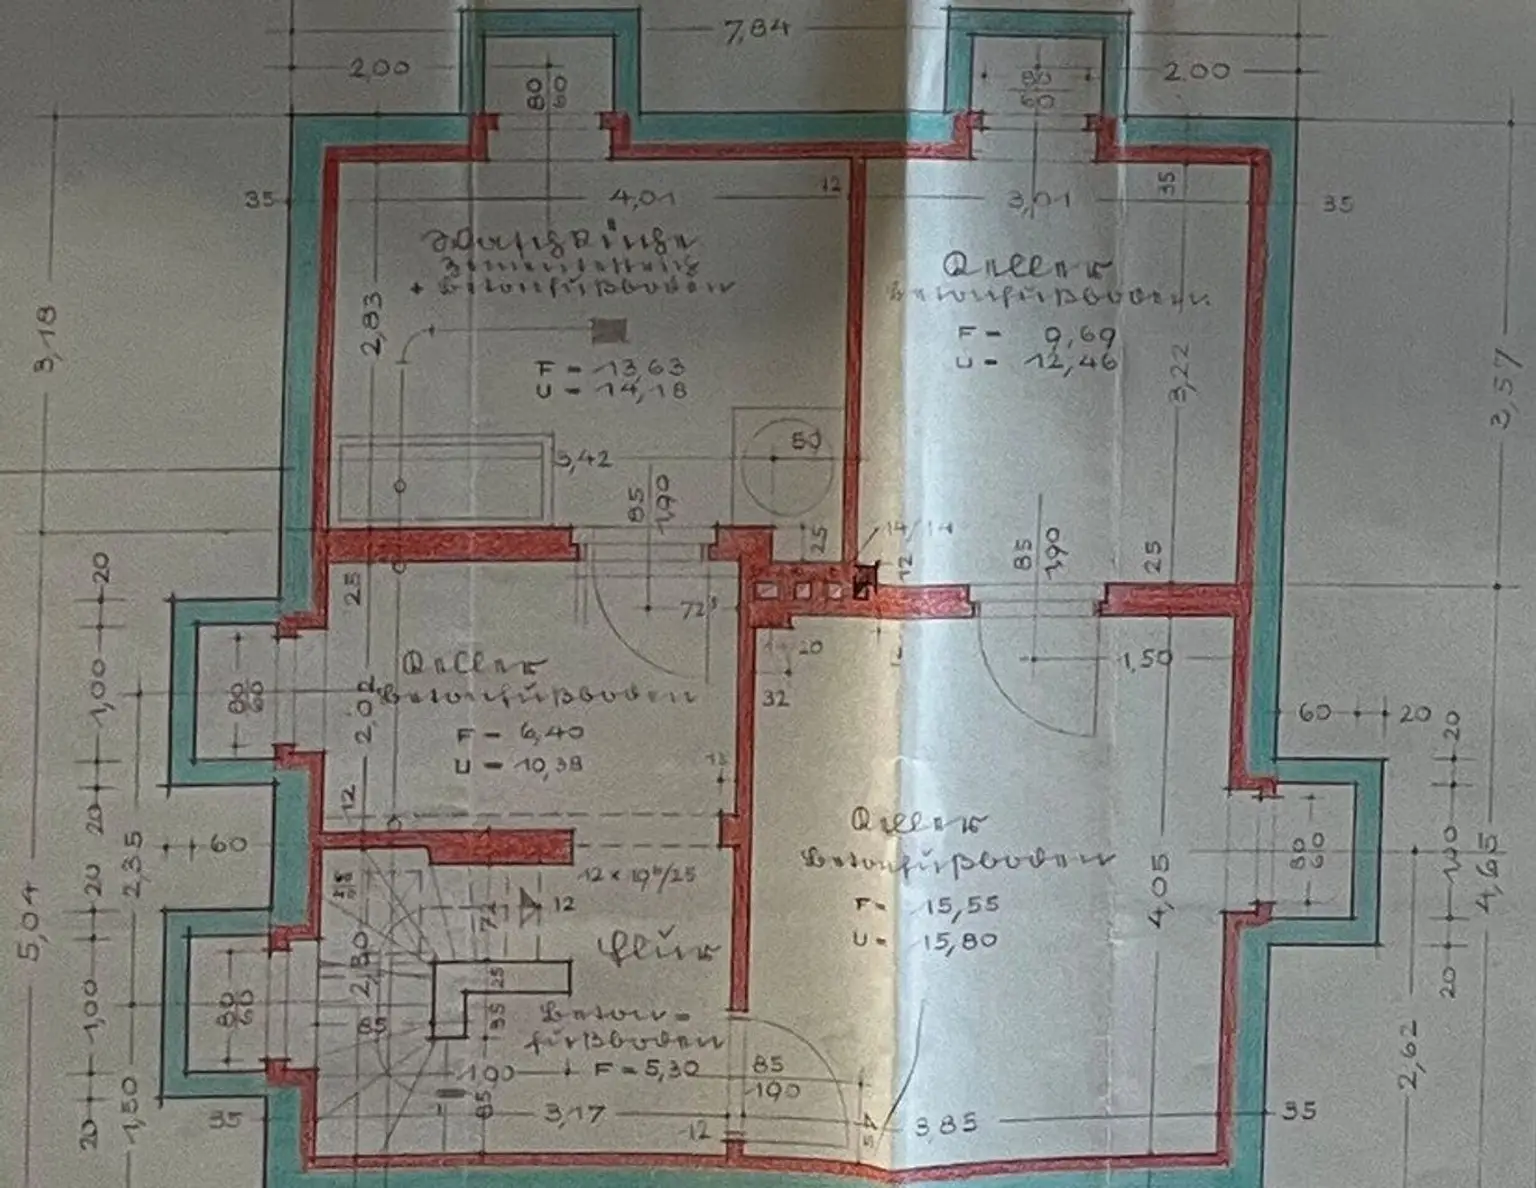 7,84
2,00
80
60
80
60
2,00
35
4,01
12
3,01
35
35
Waschküche
Zementestrich
+ Betonfußboden
Keller
Betonfußboden
2,83
F = 13,63
U = 14,18
F = 9,69
U = 12,46
3,22
3,18
3,57
3,42
80
85
1,90
25
14/14
12
85
1,90
25
20
25
72⁵
20
32
1,50
60
20
20
1,00
80
60
2,02
Keller
Betonfußboden
F = 6,40
U = 10,38
12
20
60
2,35
20
12 x 19/25
12
Keller
Betonfußboden
F = 15,55
U = 15,80
4,05
80
60
1,00
4,65
20
5,04
72
Flur
2,50
25
1,00
80
60
85
35
Beton-
fußboden
F = 5,30
1,00
85
1,90
2,62
20
1,50
35
85
3,17
12
3,85
35